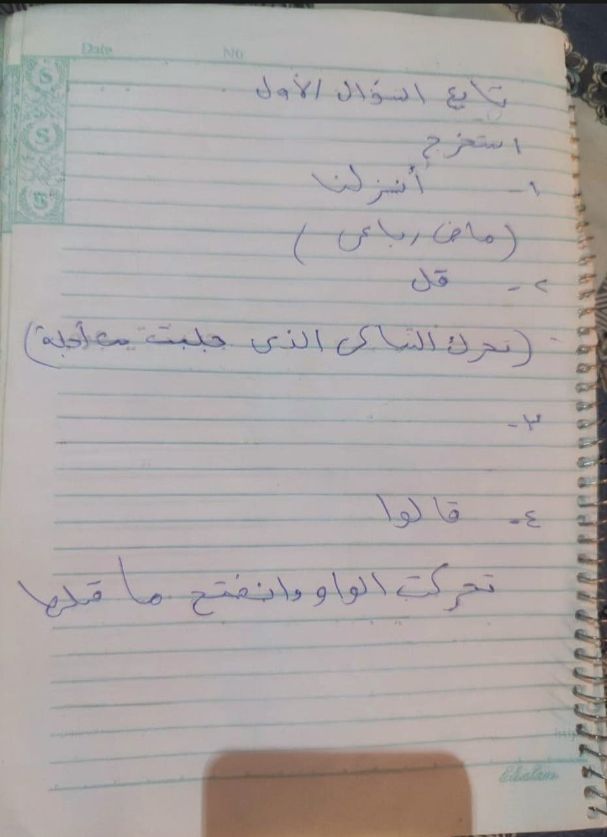 Date No
تابع السؤال الأول
استخرج
١- أنزلنا
(ماض رباعى)
٢- قل
(تحرك الساكن الذى جلبت من أجله)
٣-
٤- قالوا
تحركت الواو وانفتح ما قبلها